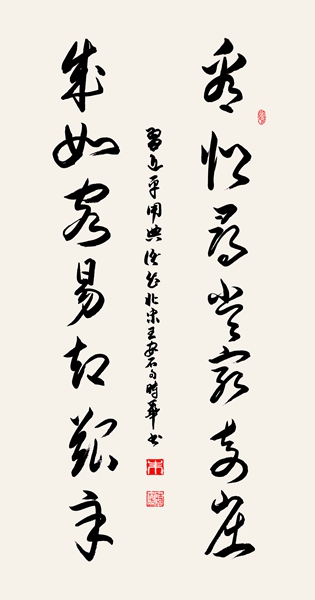 看似尋常最奇崛
成如容易却艱辛
習近平用典语出北宋王安石句時華书